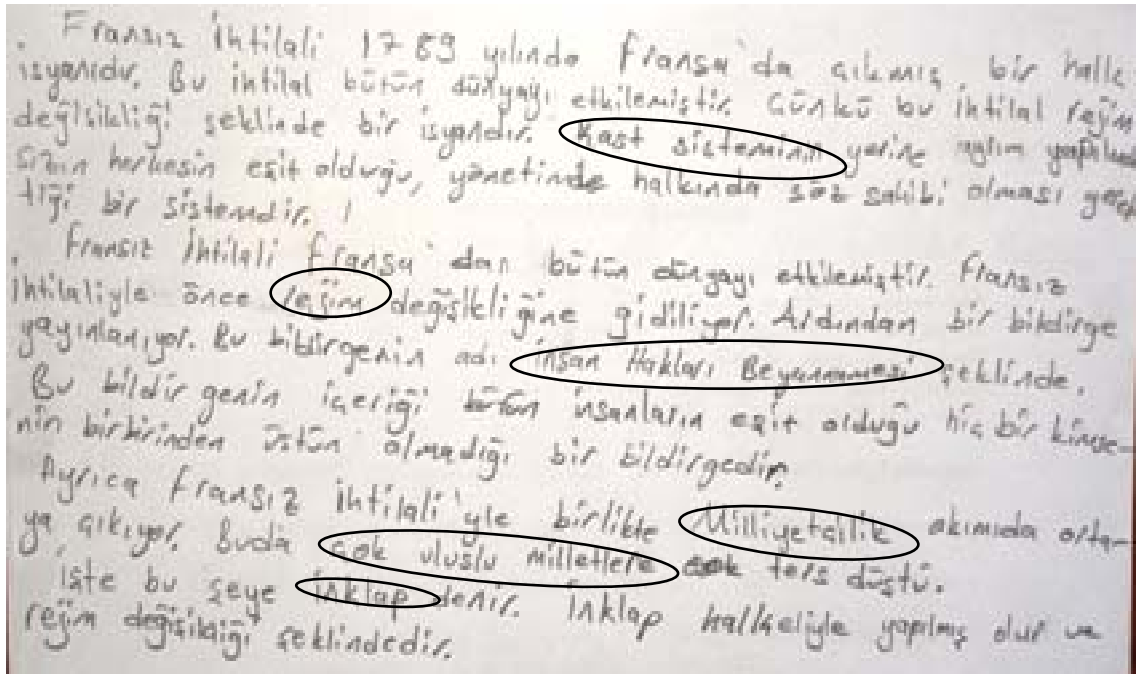 . Fransız İhtilali 1789 yılında Fransa'da çıkmış bir halk
isyanıdır. Bu ihtilal bütün dünyayı etkilemiştir. Çünkü bu ihtilal rejim
değişikliği şeklinde bir isyandır. Kast sisteminin yerine ayrım yapılmak
sızın herkesin eşit olduğu, yönetimde halkında söz sahibi olması gerek
tiği bir sistemdir.
. Fransız İhtilali Fransa'dan bütün dünyayı etkilemiştir. Fransız
ihtilaliyle önce rejim değişikliğine gidiliyor. Ardından bir bildirge
yayınlanıyor. Bu bildirgenin adı İnsan Hakları Beyannamesi şeklinde.
Bu bildirgenin içeriği bütün insanların eşit olduğu hiç bir kimse-
nin birbirinden üstün olmadığı bir bildirgedir.
Ayrıca Fransız İhtilali'yle birlikte Milliyetçilik akımıda orta-
ya çıkıyor. Buda çok uluslu milletlere ters düştü.
İşte bu şeye inklap denir. İnklap halkeliyle yapılmış olur ve
rejim değişikliği şeklindedir.